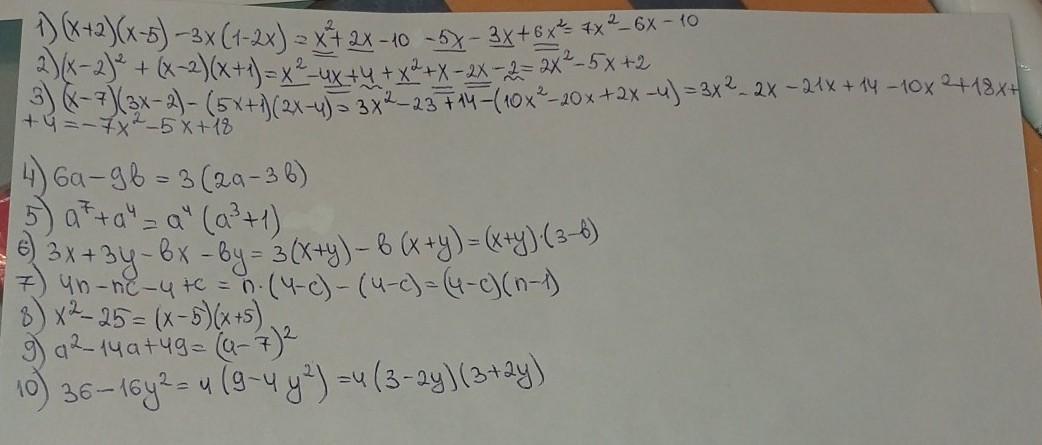 1) (x+2)(x-5) -3x(1-2x) = x²+2x-10 -5x - 3x+6x² = 7x²-6x-10
2) (x-2)² + (x-2)(x+1) = x²-4x+4+x²+x-2x-2 = 2x²-5x+2
3) (x-7)(3x-2) - (5x+1)(2x-4) = 3x²-23+14-(10x²-20x+2x-4) = 3x²-2x-21x+14-10x²+18x+
+4 = -7x²-5x+18
4) 6a-9в = 3(2a-3в)
5) a⁷+a⁴ = a⁴(a³+1)
6) 3x+3y-вx-вy = 3(x+y)-в(x+y) = (x+y)·(3-в)
7) 4n-nc-4+c = n·(4-c)-(4-c) = (4-c)(n-1)
8) x²-25 = (x-5)(x+5)
9) a²-14a+49 = (a-7)²
10) 36-16y² = 4(9-4y²) = 4(3-2y)(3+2y)